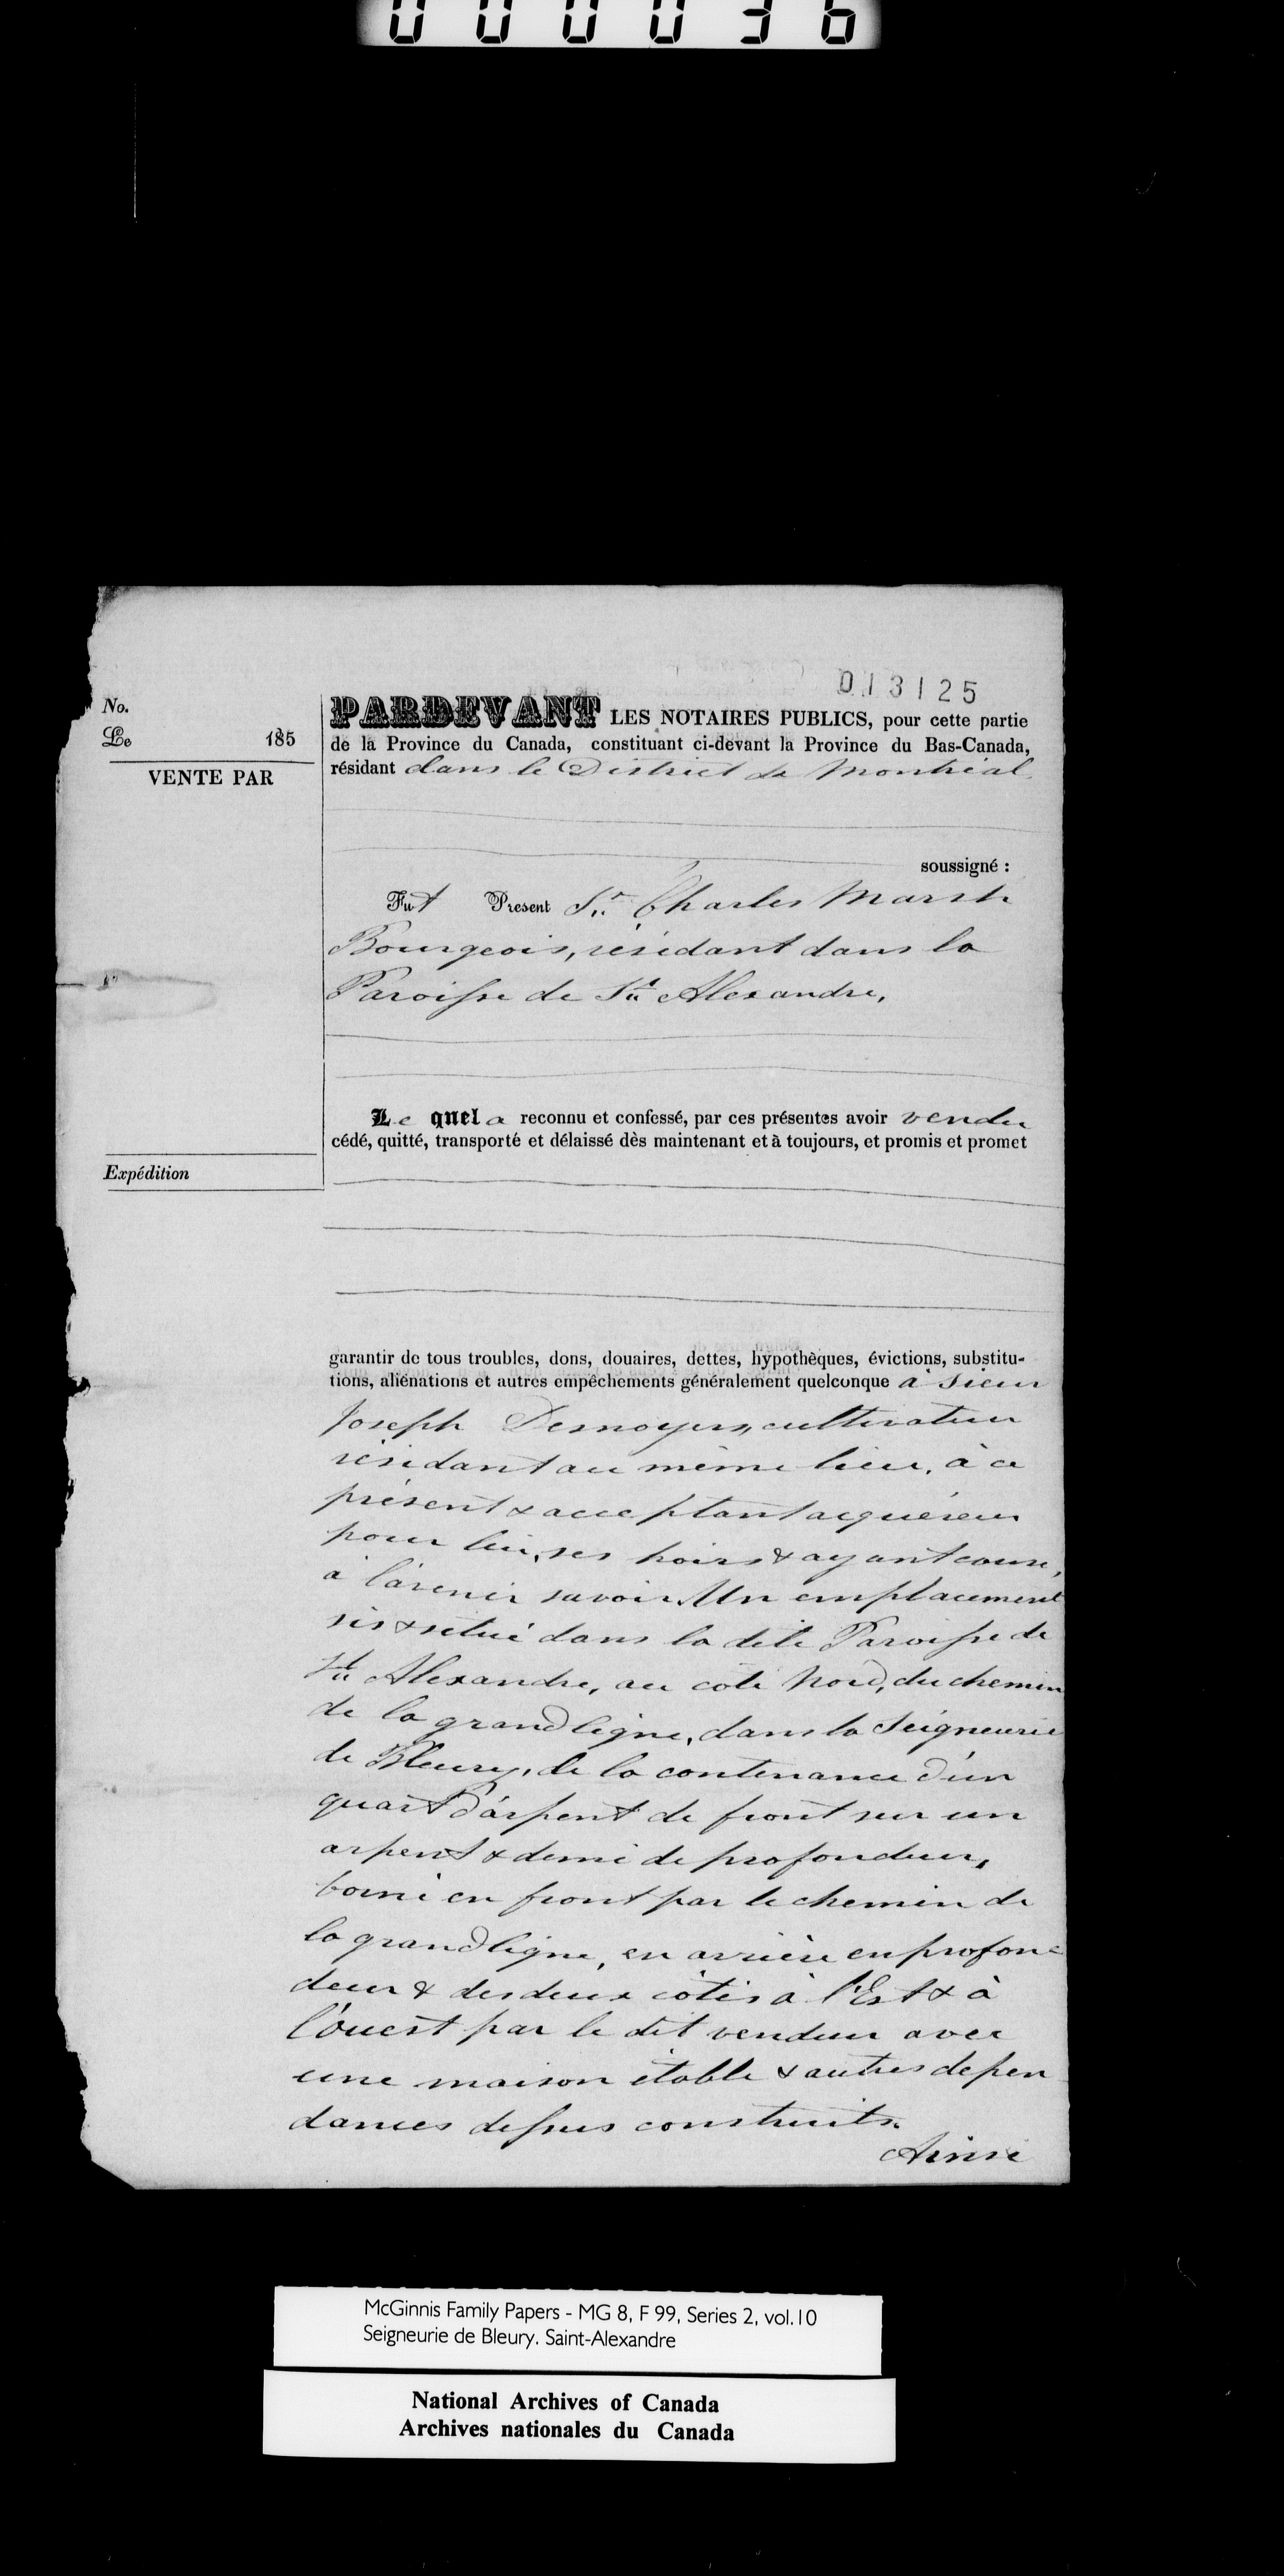 000036
013125
No.
Le 185
VENTE PAR
PARDEVANT LES NOTAIRES PUBLICS, pour cette partie
de la Province du Canada, constituant ci-devant la Province du Bas-Canada,
résidant dans le District de Montréal
soussigné :
Fut Present Sr. Charles Marsh
Bourgeois, résidant dans la
Paroisse de St. Alexandre,
Le quel a reconnu et confessé, par ces présentes avoir vendu
cédé, quitté, transporté et délaissé dès maintenant et à toujours, et promis et promet
Expédition
garantir de tous troubles, dons, douaires, dettes, hypothèques, évictions, substitu-
tions, aliénations et autres empêchements généralement quelconque à Sieur
Joseph Desnoyers, cultivateur
résidant au même lieu, à ce
présent & acceptant acquéreur
pour lui, ses hoirs & ayant cause,
à l'avenir savoir Un emplacement
sis & situé dans la dite Paroisse de
St. Alexandre, au côté Nord, du chemin
de la grand ligne, dans la Seigneurie
de Bleury, de la contenance d'un
quart d'arpent de front sur un
arpent & demi de profondeur,
borné en front par le chemin de
la grand ligne, en arrière en profon-
deur & des deux côtés à l'Est & à
l'ouest par le dit vendeur avec
une maison étable & autres depen
dances dessus construits.
Ainsi
McGinnis Family Papers - MG 8, F 99, Series 2, vol.10
Seigneurie de Bleury. Saint-Alexandre
National Archives of Canada
Archives nationales du Canada